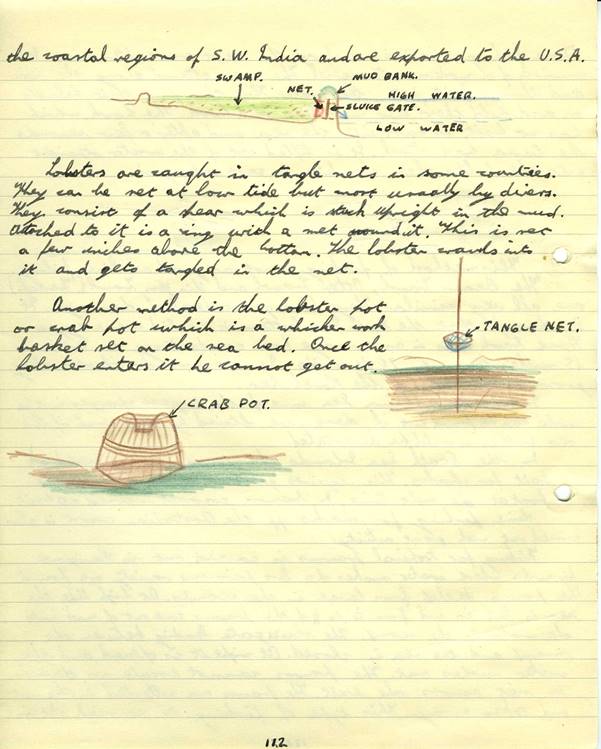 the coastal regions of S.W. India and are exported to the U.S.A.
SWAMP.
MUD BANK.
NET.
HIGH WATER.
SLUICE GATE.
LOW WATER
Lobsters are caught in tangle nets in some countries.
They can be set at low tide but most usually by divers.
They consist of a spear which is stuck upright in the mud.
Attached to it is a ring with a net round it. This is set
a few inches above the bottom. The lobster crawls into
it and gets tangled in the net.
Another method is the lobster pot
or crab pot which is a whicker work
basket set on the sea bed. Once the
lobster enters it he cannot get out.
TANGLE NET.
CRAB POT.
112